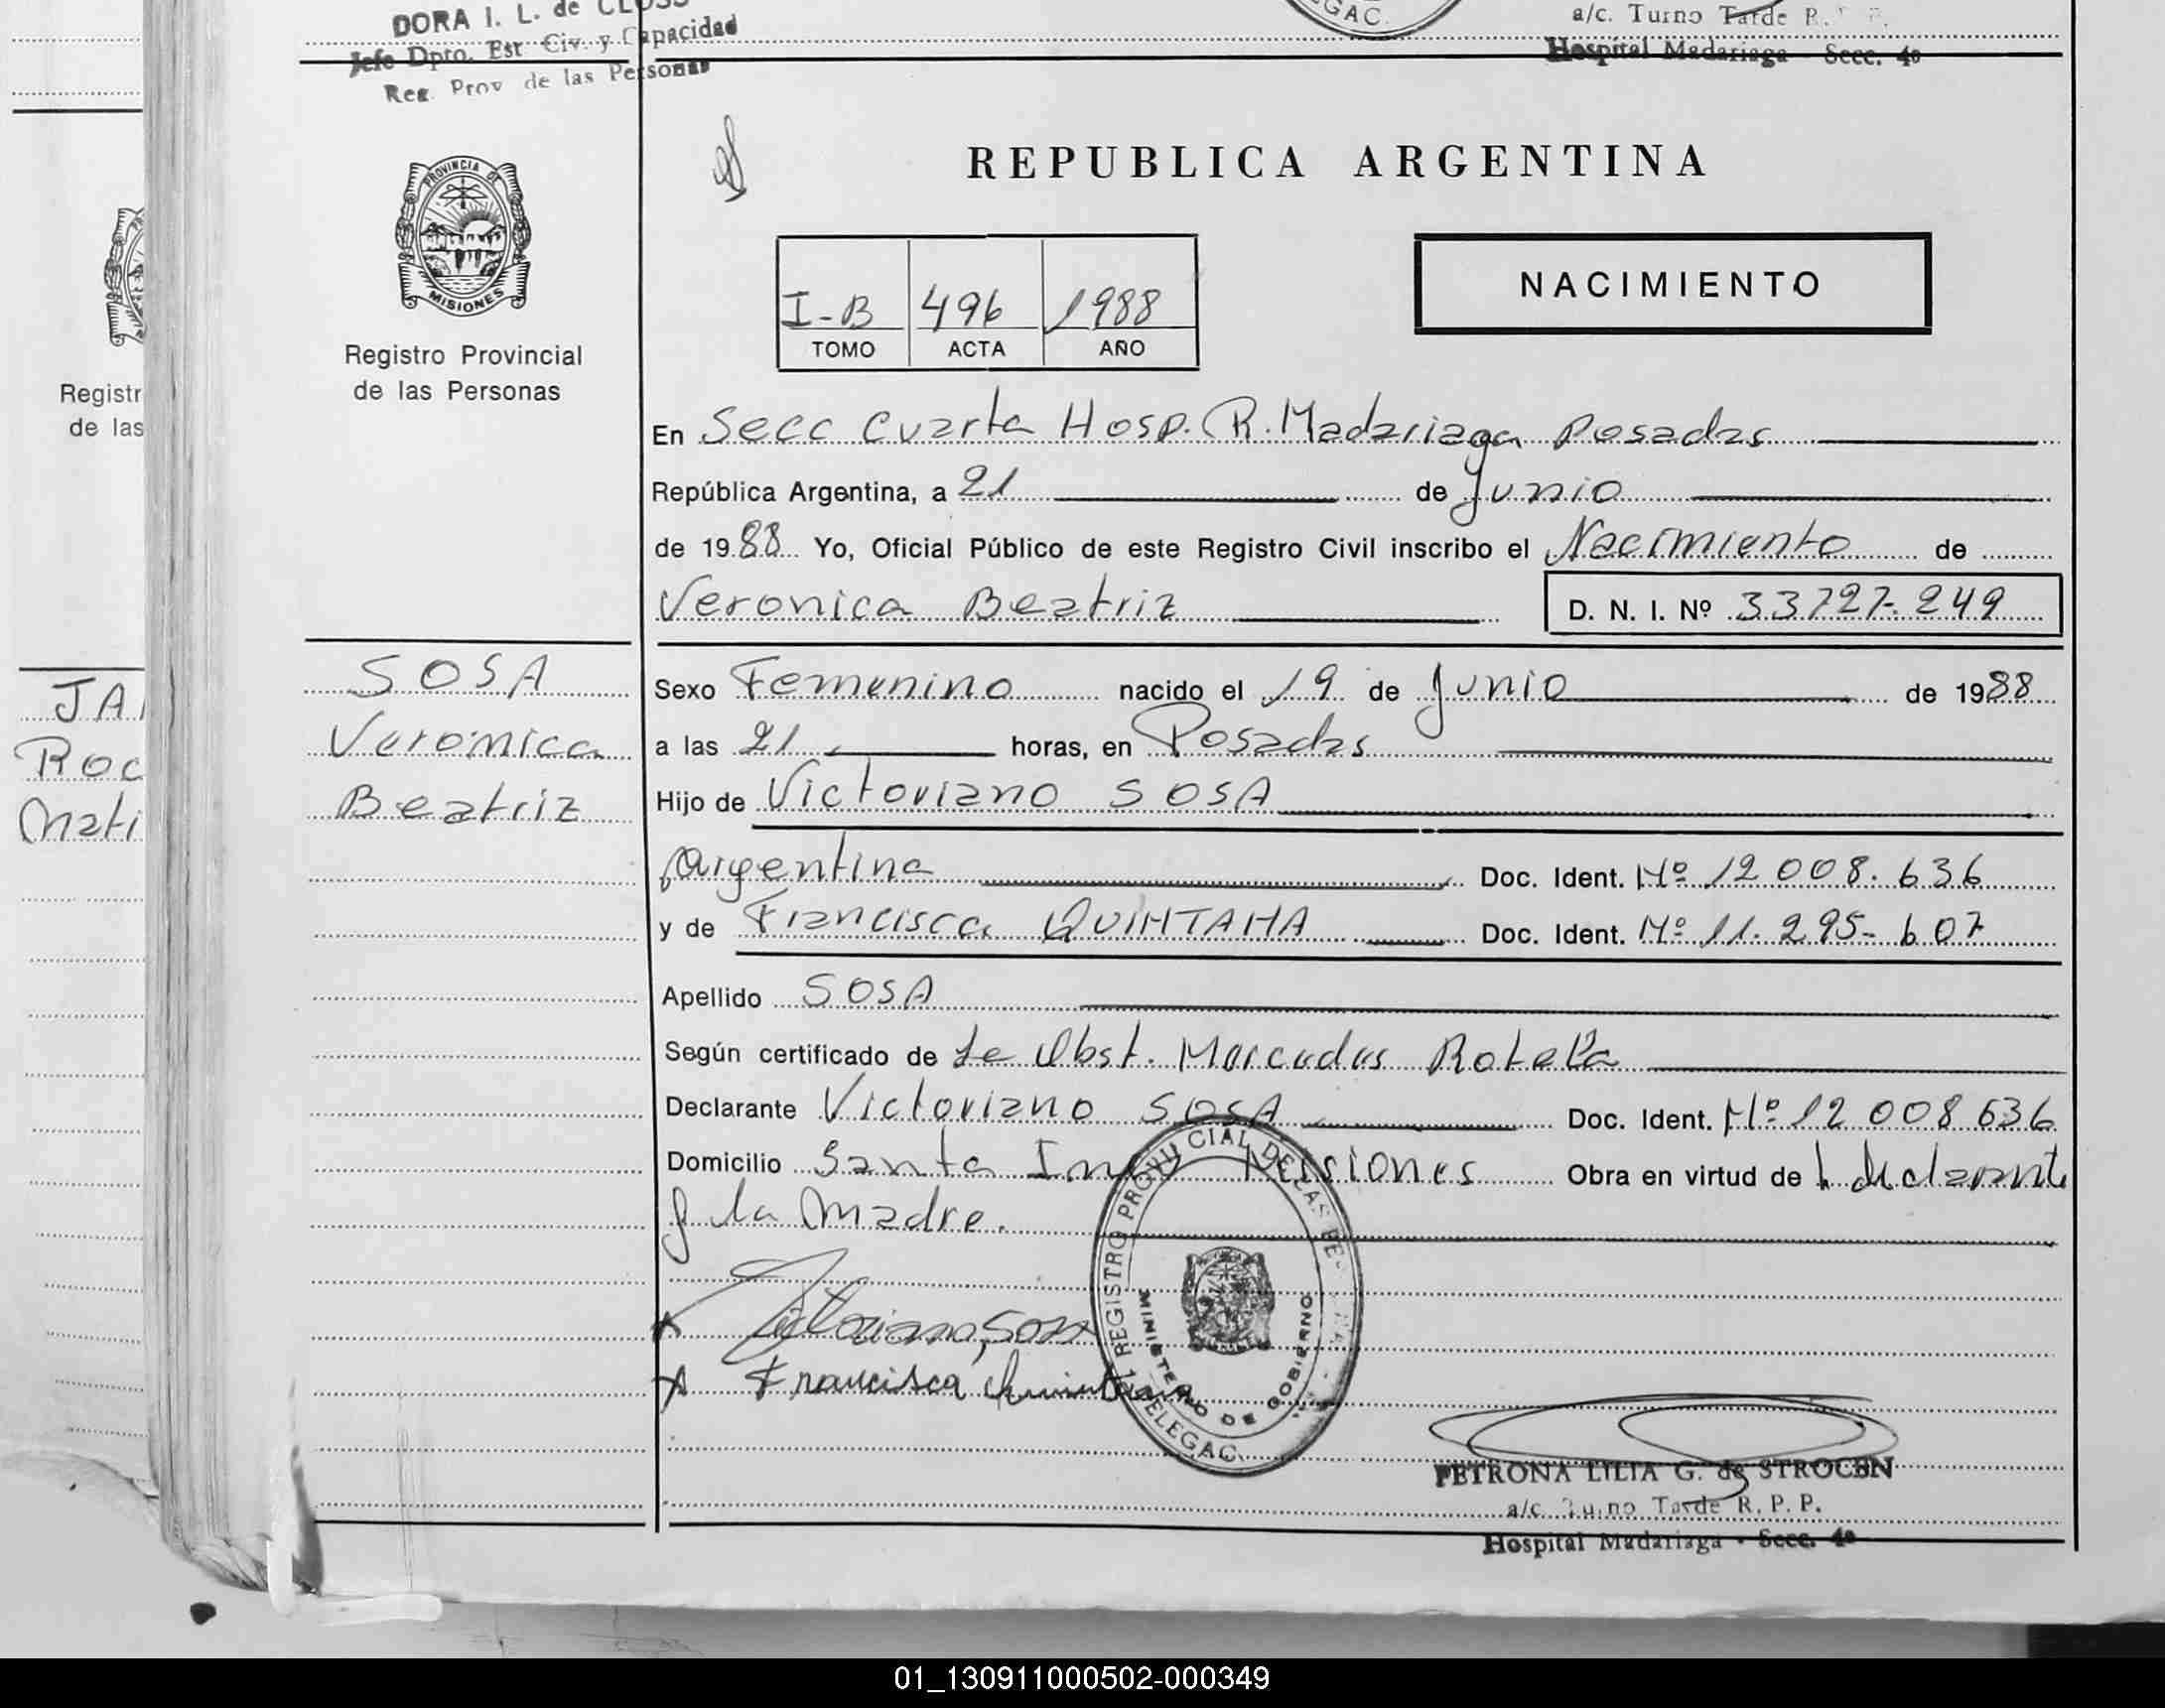 DORA I. L. de CLOSS
Jefe Dpto. Est Civ. y Capacidad
Reg. Prov de las Personas
EGAC.
a/c. Turno Tarde R. P. P.
Hospital Madariaga Secc. 4a
PROVINCIA DE
MISIONES
Registro Provincial
de las Personas
Registr
de las
JA
Roc
Mati
SOSA
Veronica
Beatriz
REPUBLICA ARGENTINA
NACIMIENTO
I-B 496 1988
TOMO ACTA AÑO
En Secc Cuarta Hosp. R. Madariaga Posadas
República Argentina, a 21 de Junio
de 1988 Yo, Oficial Público de este Registro Civil inscribo el Nacimiento de
Veronica Beatriz D. N. I. Nº 33727-249
Sexo Femenino nacido el 19 de Junio de 1988
a las 21 horas, en Posadas
Hijo de Victoriano SOSA
Argentina Doc. Ident. Nº 12 008. 636
y de Francisca QUINTANA Doc. Ident. Nº 11. 295- 607
Apellido SOSA
Según certificado de Le Obst. Mercedes Rotela
Declarante Victoriano SOSA Doc. Ident. Nº 12 008 636
Domicilio Santa Ines Misiones Obra en virtud de declarante
y la Madre.
Victoriano, Sosa
Francisca Quintana
REGISTRO PROVINCIAL DE LAS PE
MINISTERIO DE GOBIERNO
DELEGAC.
PETRONA LILIA G. de STROCEN
a/c. Turno Tarde R. P. P.
Hospital Madariaga - Secc. 4a
01_130911000502-000349